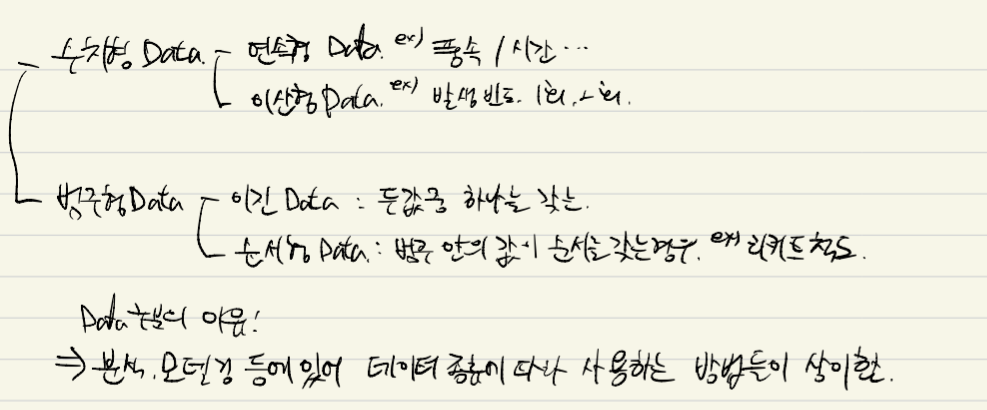 수치형 Data. 연속형 Data. ex) 풍속 / 시간 ...
이산형 Data. ex) 발생 빈도. 1회, 2회.
범주형 Data 이진 Data : 두값중 하나를 갖는.
순서형 Data. : 범주 안의 값이 순서를 갖는경우. ex) 리커트척도.
Data 구분의 이유!
⇒ 분석. 모델링 등에 있어 데이터 종류에 따라 사용하는 방법들이 상이함.